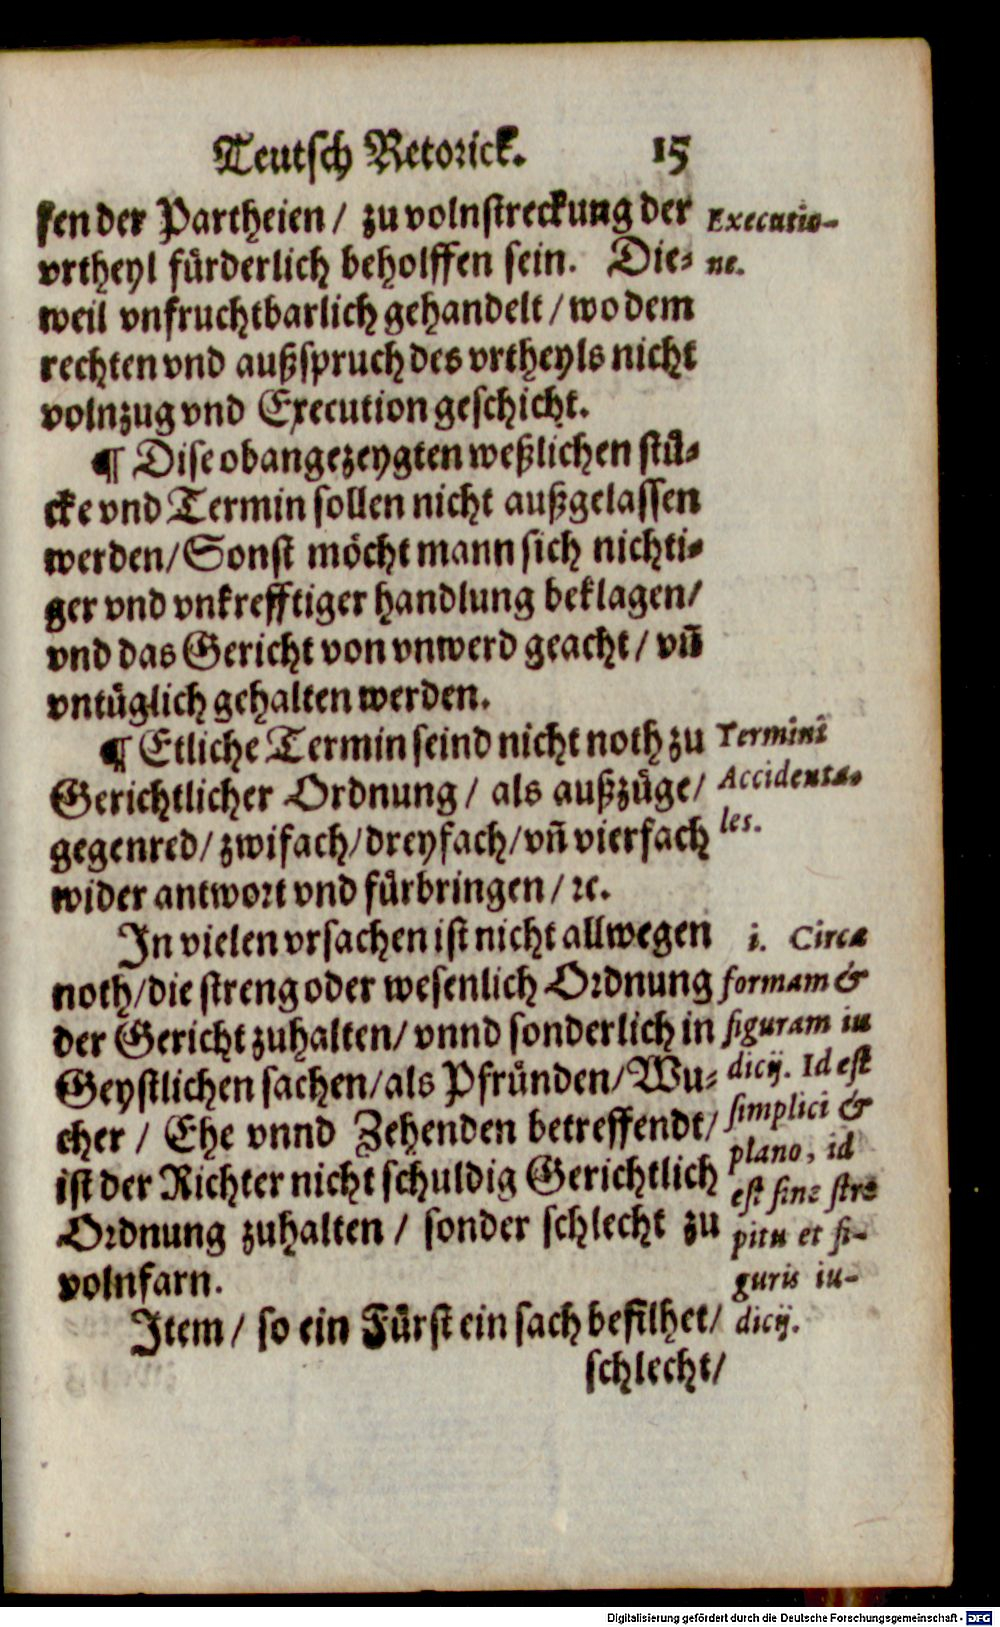 Teutsch Retorick. 15
sen der Partheien / zu volnstreckung der
vrtheyl fürderlich beholffen sein. Die-
weil vnfruchtbarlich gehandelt / wo dem
rechten vnd außspruch des vrtheyls nicht
volnzug vnd Execution geschicht.
¶ Dise obangezeygten weßlichen stü-
cke vnd Termin sollen nicht außgelassen
werden/ Sonst möcht mann sich nichti-
ger vnd vnkrefftiger handlung beklagen/
vnd das Gericht von vnwerd geacht / vñ
vntüglich gehalten werden.
¶ Etliche Termin seind nicht noth zu
Gerichtlicher Ordnung / als außzüge/
gegenred/ zwifach/ dreyfach/ vñ vierfach
wider antwort vnd fürbringen / ꝛc.
In vielen vrsachen ist nicht allwegen
noth/ die streng oder wesenlich Ordnung
der Gericht zuhalten/ vnnd sonderlich in
Geystlichen sachen/ als Pfründen/ Wu-
cher / Ehe vnnd Zehenden betreffendt/
ist der Richter nicht schuldig Gerichtlich
Ordnung zuhalten / sonder schlecht zu
volnfarn.
Item / so ein Fürst ein sach befilhet/
schlecht/
Executio-
ne.
Termini
Accidenta-
les.
i. Circa
formam &
figuram iu
dicij. Id est
simplici &
plano, id
est sine stre
pitu et fi-
guris iu-
dicij.
Digitalisierung gefördert durch die Deutsche Forschungsgemeinschaft - DFG